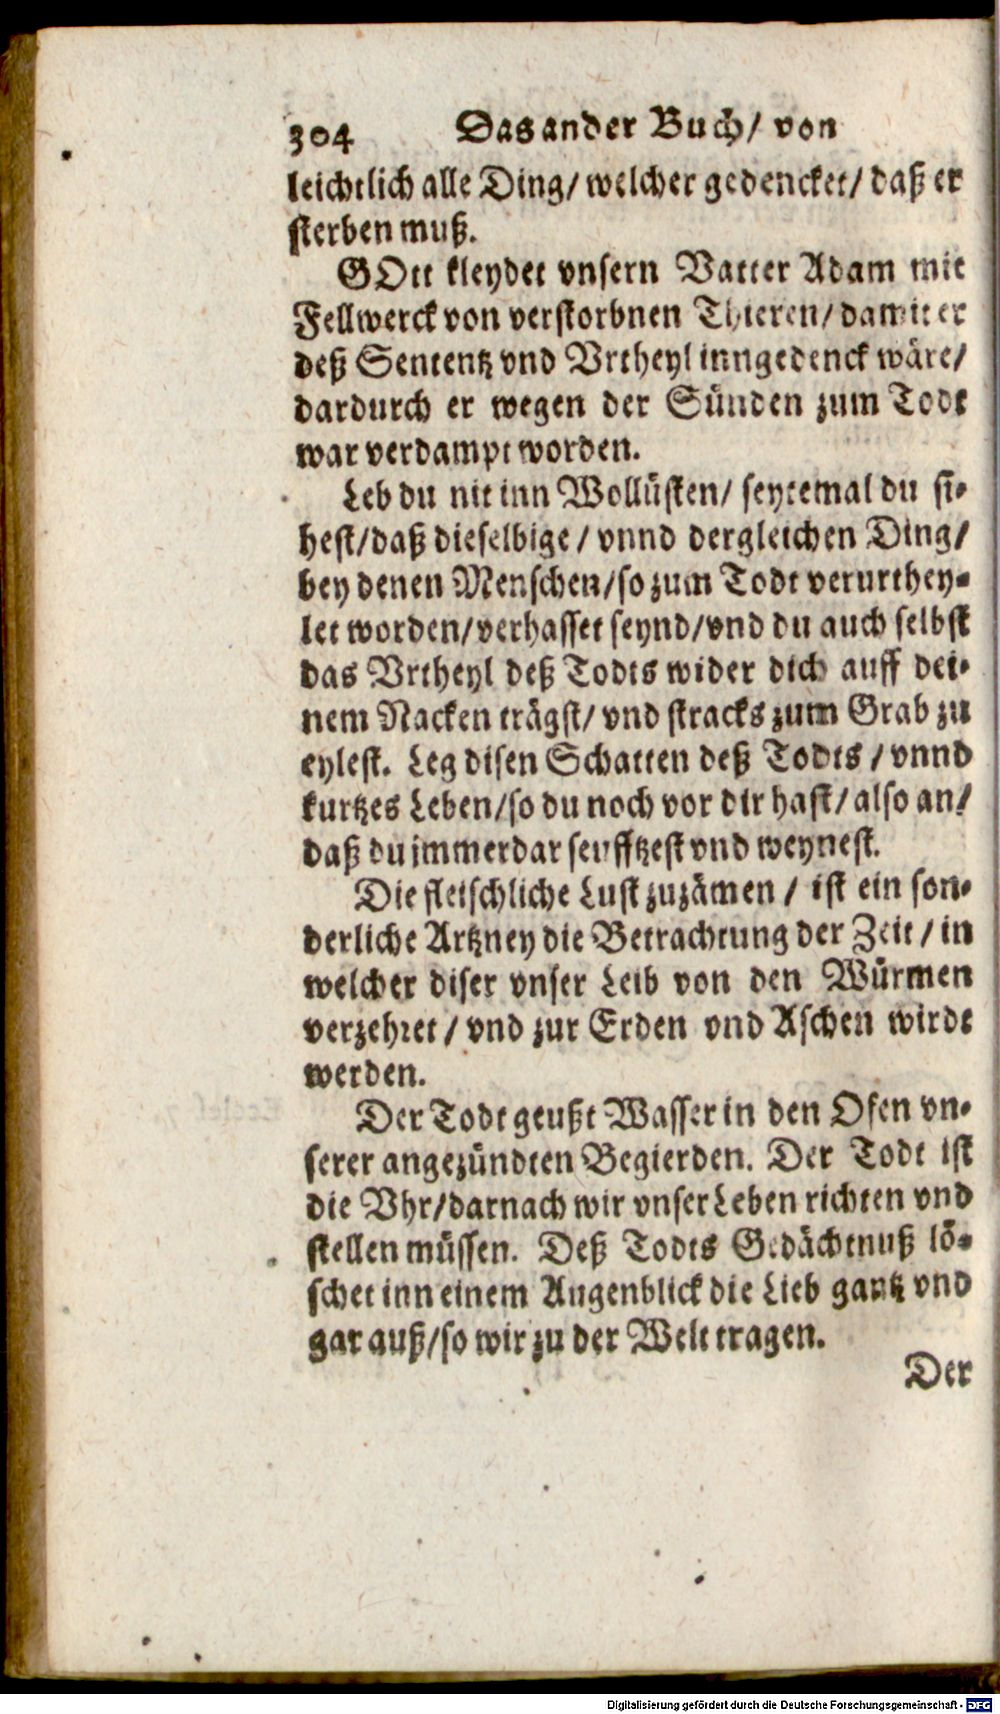 304 Das ander Buch/ von
leichtlich alle Ding/ welcher gedencket/ daß er
sterben muß.
GOtt kleydet vnsern Vatter Adam mit
Fellwerck von verstorbnen Thieren/ damit er
deß Sententz vnd Vrtheyl inngedenck wäre/
dardurch er wegen der Sünden zum Todt
war verdampt worden.
Leb du nit inn Wollüsten/ seytemal du si-
hest/ daß dieselbige/ vnnd dergleichen Ding/
bey denen Menschen/ so zum Todt verurthey-
let worden/ verhasset seynd/ vnd du auch selbst
das Vrtheyl deß Todts wider dich auff dei-
nem Nacken trägst/ vnd stracks zum Grab zu
eylest. Leg disen Schatten deß Todts/ vnnd
kurtzes Leben/ so du noch vor dir hast/ also an/
daß du jmmerdar seufftzest vnd weynest.
Die fleischliche Lust zuzämen/ ist ein son-
derliche Artzney die Betrachtung der Zeit/ in
welcher diser vnser Leib von den Würmen
verzehret/ vnd zur Erden vnd Aschen wirdt
werden.
Der Todt geußt Wasser in den Ofen vn-
serer angezündten Begierden. Der Todt ist
die Vhr/ darnach wir vnser Leben richten vnd
stellen müssen. Deß Todts Gedächtnuß lö-
schet inn einem Augenblick die Lieb gantz vnd
gar auß/ so wir zu der Welt tragen.
Der
Digitalisierung gefördert durch die Deutsche Forschungsgemeinschaft - DFG